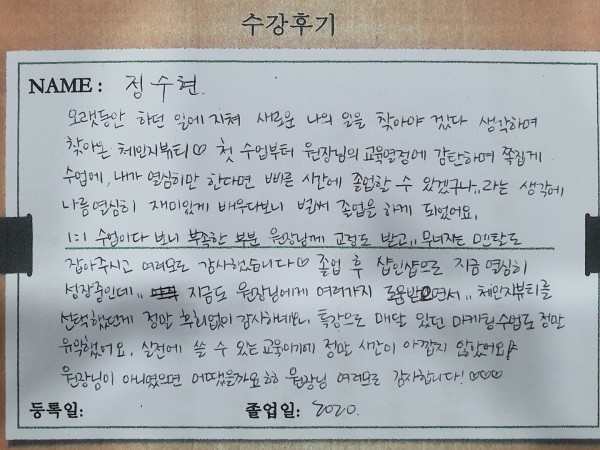 수강후기
NAME: 정수현.
오랫동안 하던 일에 지쳐 새로운 나의 일을 찾아야 겠다 생각하며
찾아온 체인지뷰티♡ 첫 수업부터 원장님의 교육열정에 감탄하며 쪽집게
수업에, 내가 열심히만 한다면 빠른 시간에 졸업할 수 있겠구나,, 라는 생각에
나름 열심히 재미있게 배우다보니 벌써 졸업을 하게 되었어요.
1:1 수업이다 보니 부족한 부분 원장님께 교정도 받고,, 무너지는 멘탈도
잡아주시고 여러모로 감사했습니다♡ 졸업 후 샵인샵으로 지금 열심히
성장중인데,, 지금도 원장님에게 여러가지 도움받으면서,, 체인지뷰티를
선택했던게 정말 후회없이 감사하네요. 특강으로 매달 있던 마케팅수업도 정말
유익했어요. 실전에 쓸 수 있는 교육이기에 정말 시간이 아깝지 않았어요
원장님이 아니였으면 어땠을까요 ㅎㅎ 원장님 여러모로 감사합니다! ♡♡♡
등록일: 졸업일: 2020.